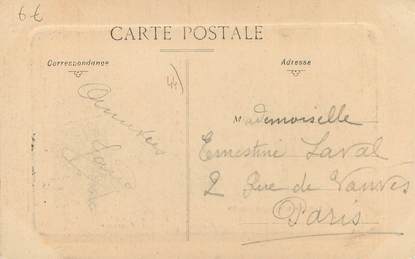 6€
CARTE POSTALE
Correspondance
Adresse
Mademoiselle
Ernestine Laval
2 Rue de Vanves
Paris